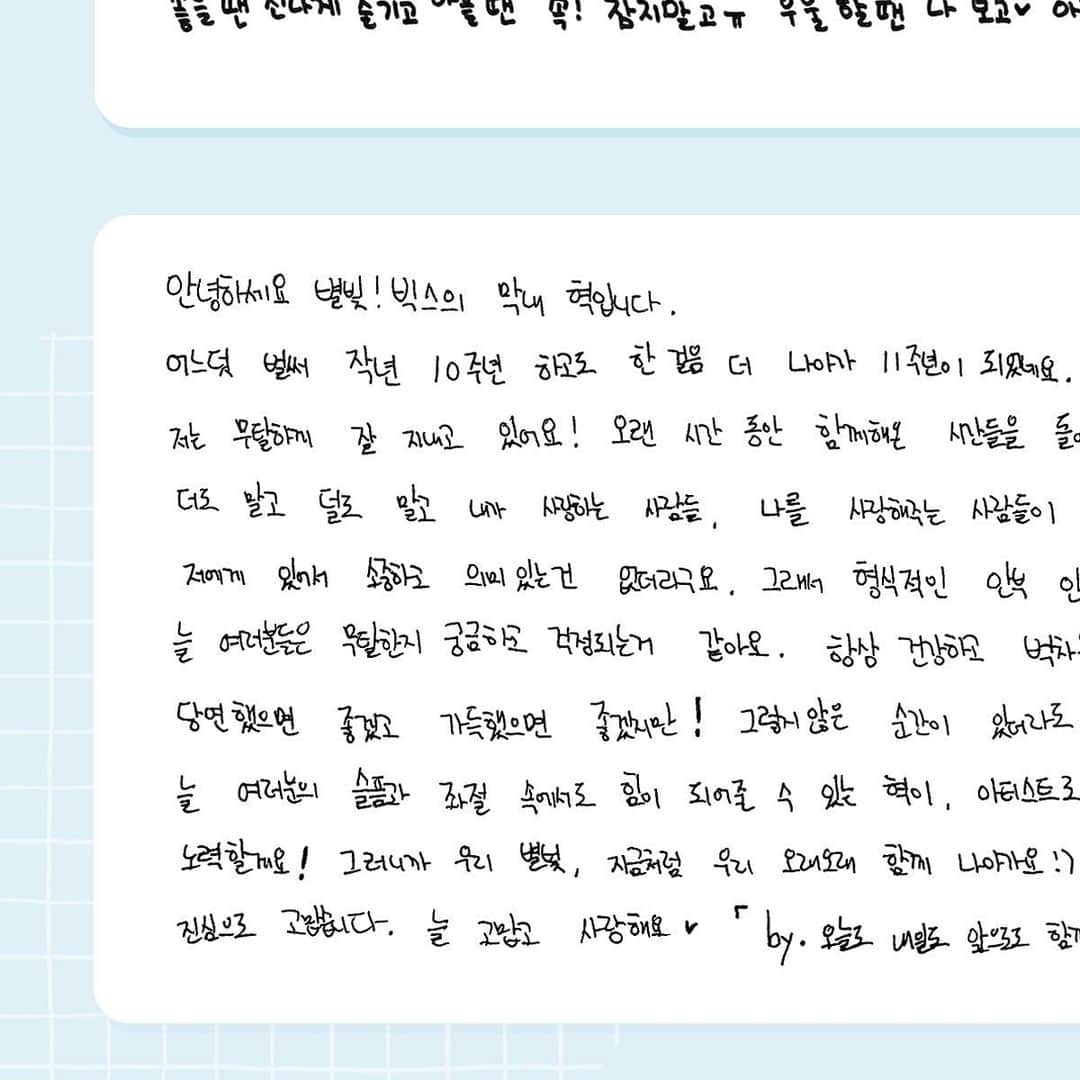 좋을 땐 신나게 즐기고 아플 땐 꼭! 참지말고ㅠ 우울할땐 나 보고♥
안녕하세요 별빛! 빅스의 막내 혁입니다.
어느덧 벌써 작년 10주년 하고도 한 걸음 더 나아가 11주년이 되었네요.
저는 무탈하게 잘 지내고 있어요! 오랜 시간 동안 함께해온 시간들을
더도 말고 덜도 말고 내가 사랑하는 사람들, 나를 사랑해주는 사람들이
저에게 있어서 소중하고 의미있는건 없더라구요. 그래서 형식적인 안부
늘 여러분들은 무탈한지 궁금하고 걱정되는거 같아요. 항상 건강하고
당연했으면 좋겠고 가득했으면 좋겠지만! 그렇지 않은 순간이 있더라도
늘 여러분의 슬픔과 좌절 속에서도 힘이 되어줄 수 있는 혁이, 아티스트로
노력할게요! 그러니까 우리 별빛, 지금처럼 우리 오래오래 함께 나아가요!
진심으로 고맙습니다. 늘 고맙고 사랑해요♥ 「by. 오늘도 내일도 앞으로도